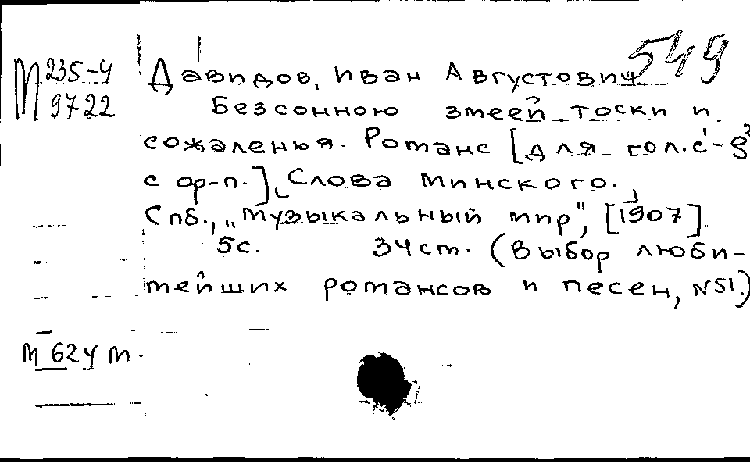 549
М 235-4
9722
Давидов, Иван Августович
Безсонною змеей тоски и
сожаленья. Романс [для гол. c'-g²
с ф-п.] Слова Минского.
Спб., "Музыкальный мир", [1907]
5с. 34см. (Выбор люби-
мейших романсов и песен, №51.)
М 624 м.